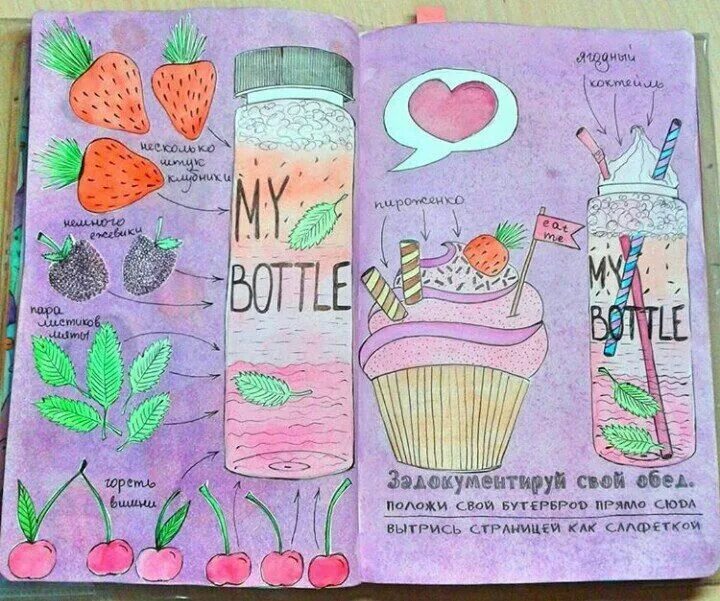 несколько
штук
клубники
немного
ежевики
пара
листиков
мяты
горсть
вишни
MY
BOTTLE
ягодный
коктейль
пироженко
eat
me
MY
BOTTLE
Задокументируй свой обед.
положи свой бутерброд прямо сюда
вытрись страницей как салфеткой